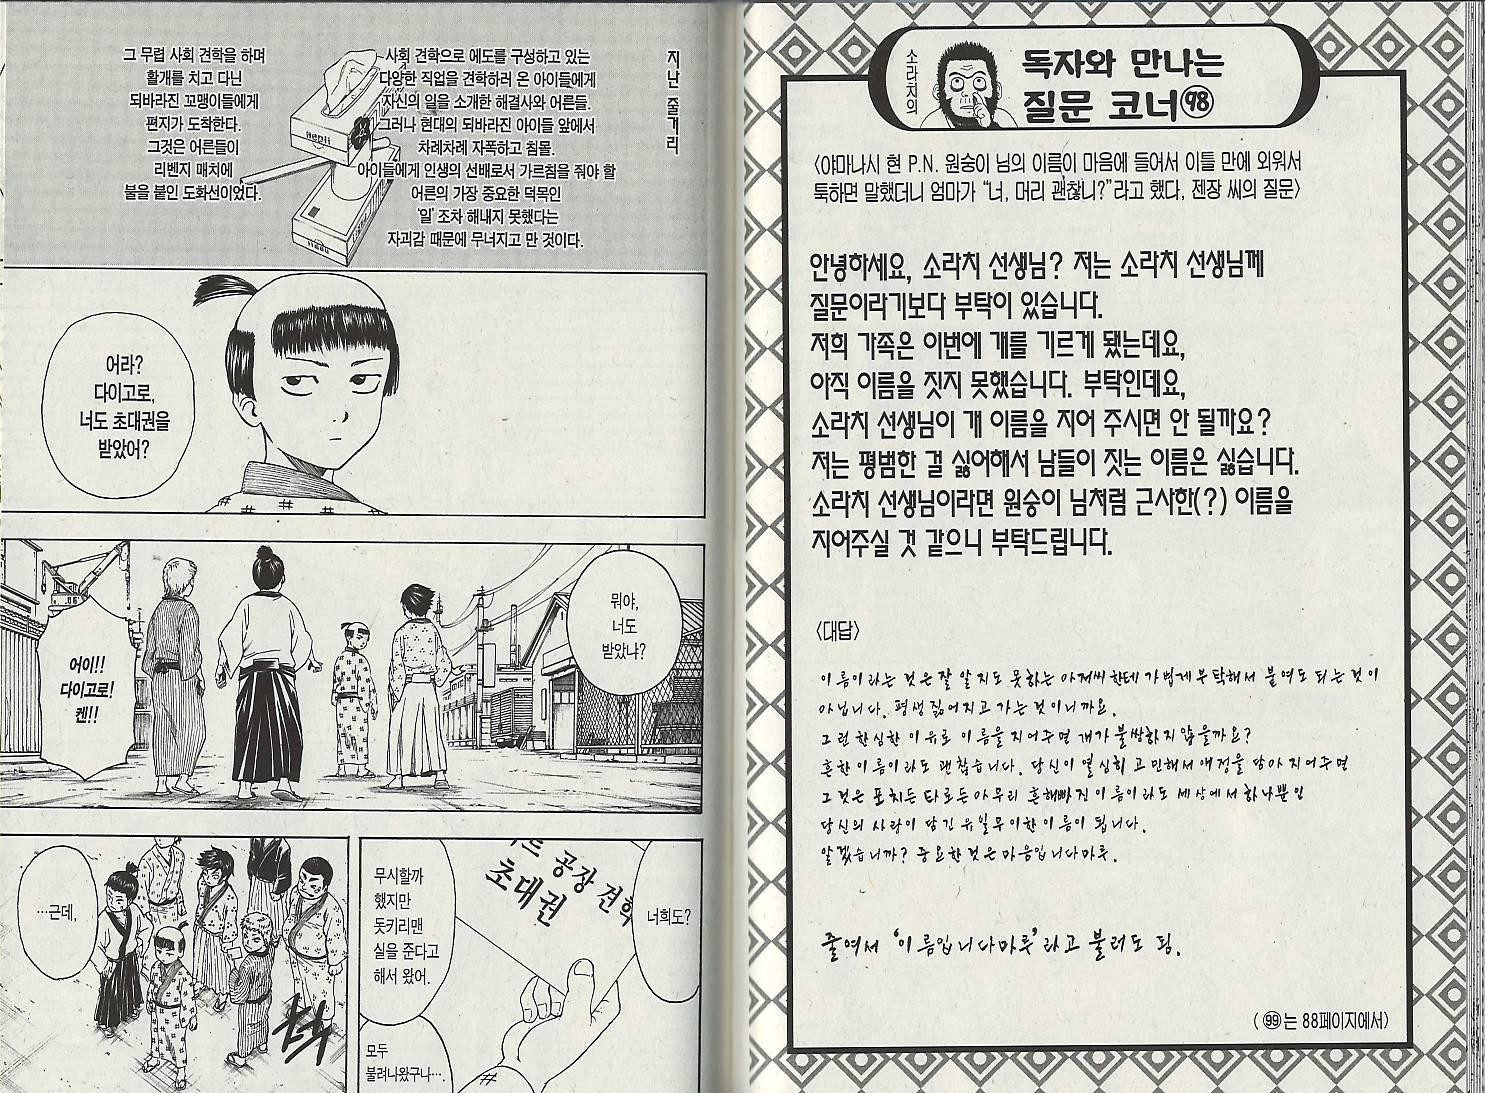 소라치의
독자와 만나는
질문 코너 98
〈야마나시 현 P.N. 원숭이 님의 이름이 마음에 들어서 이틀 만에 외워서
툭하면 말했더니 엄마가 “너, 머리 괜찮니?”라고 했다, 젠장 씨의 질문〉
안녕하세요, 소라치 선생님? 저는 소라치 선생님께
질문이라기보다 부탁이 있습니다.
저희 가족은 이번에 개를 기르게 됐는데요,
아직 이름을 짓지 못했습니다. 부탁인데요,
소라치 선생님이 개 이름을 지어 주시면 안 될까요?
저는 평범한 걸 싫어해서 남들이 짓는 이름은 싫습니다.
소라치 선생님이라면 원숭이 님처럼 근사한(?) 이름을
지어주실 것 같으니 부탁드립니다.
〈대답〉
이름이라는 것은 잘 알지도 못하는 아저씨한테 가볍게 부탁해서 붙여도 되는 것이
아닙니다. 평생 짊어지고 가는 것이니까요.
그런 한심한 이유로 이름을 지어주면 개가 불쌍하지 않을까요?
흔한 이름이라도 괜찮습니다. 당신이 열심히 고민해서 애정을 담아 지어주면
그것은 포치든 타로든 아무리 흔해빠진 이름이라도 세상에서 하나뿐인
당신의 사랑이 담긴 유일무이한 이름이 됩니다.
알겠습니까? 중요한 것은 마음입니다마루.
줄여서 ‘이름입니다마루’라고 불러도 됨.
( 99는 88페이지에서)
지난 줄거리
사회 견학으로 에도를 구성하고 있는
다양한 직업을 견학하러 온 아이들에게
자신의 일을 소개한 해결사와 어른들.
그러나 현대의 되바라진 아이들 앞에서
차례차례 자폭하고 침몰.
아이들에게 인생의 선배로서 가르침을 줘야 할
어른의 가장 중요한 덕목인
‘일’ 조차 해내지 못했다는
자괴감 때문에 무너지고 만 것이다.
그 무렵 사회 견학을 하며
활개를 치고 다닌
되바라진 꼬맹이들에게
편지가 도착한다.
그것은 어른들이
리벤지 매치에
불을 붙인 도화선이었다.
어라?
다이고로,
너도 초대권을
받았어?
뭐야,
너도
받았냐?
어이!!
다이고로!
켄!!
너희도?
공장 견학
초대권
무시할까
했지만
돗키리맨
실을 준다고
해서 왔어.
모두
불려나왔구나….
…근데,